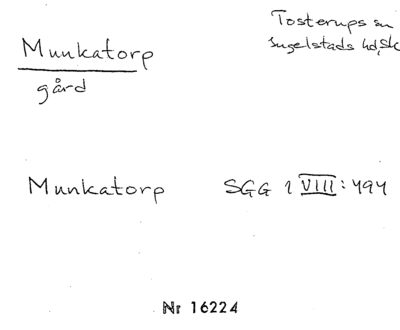 Tosterups sn
Munkatorp
Ingelstads hd, Sk
gård
Munkatorp SGG 1 VIII: 494
Nr 16224